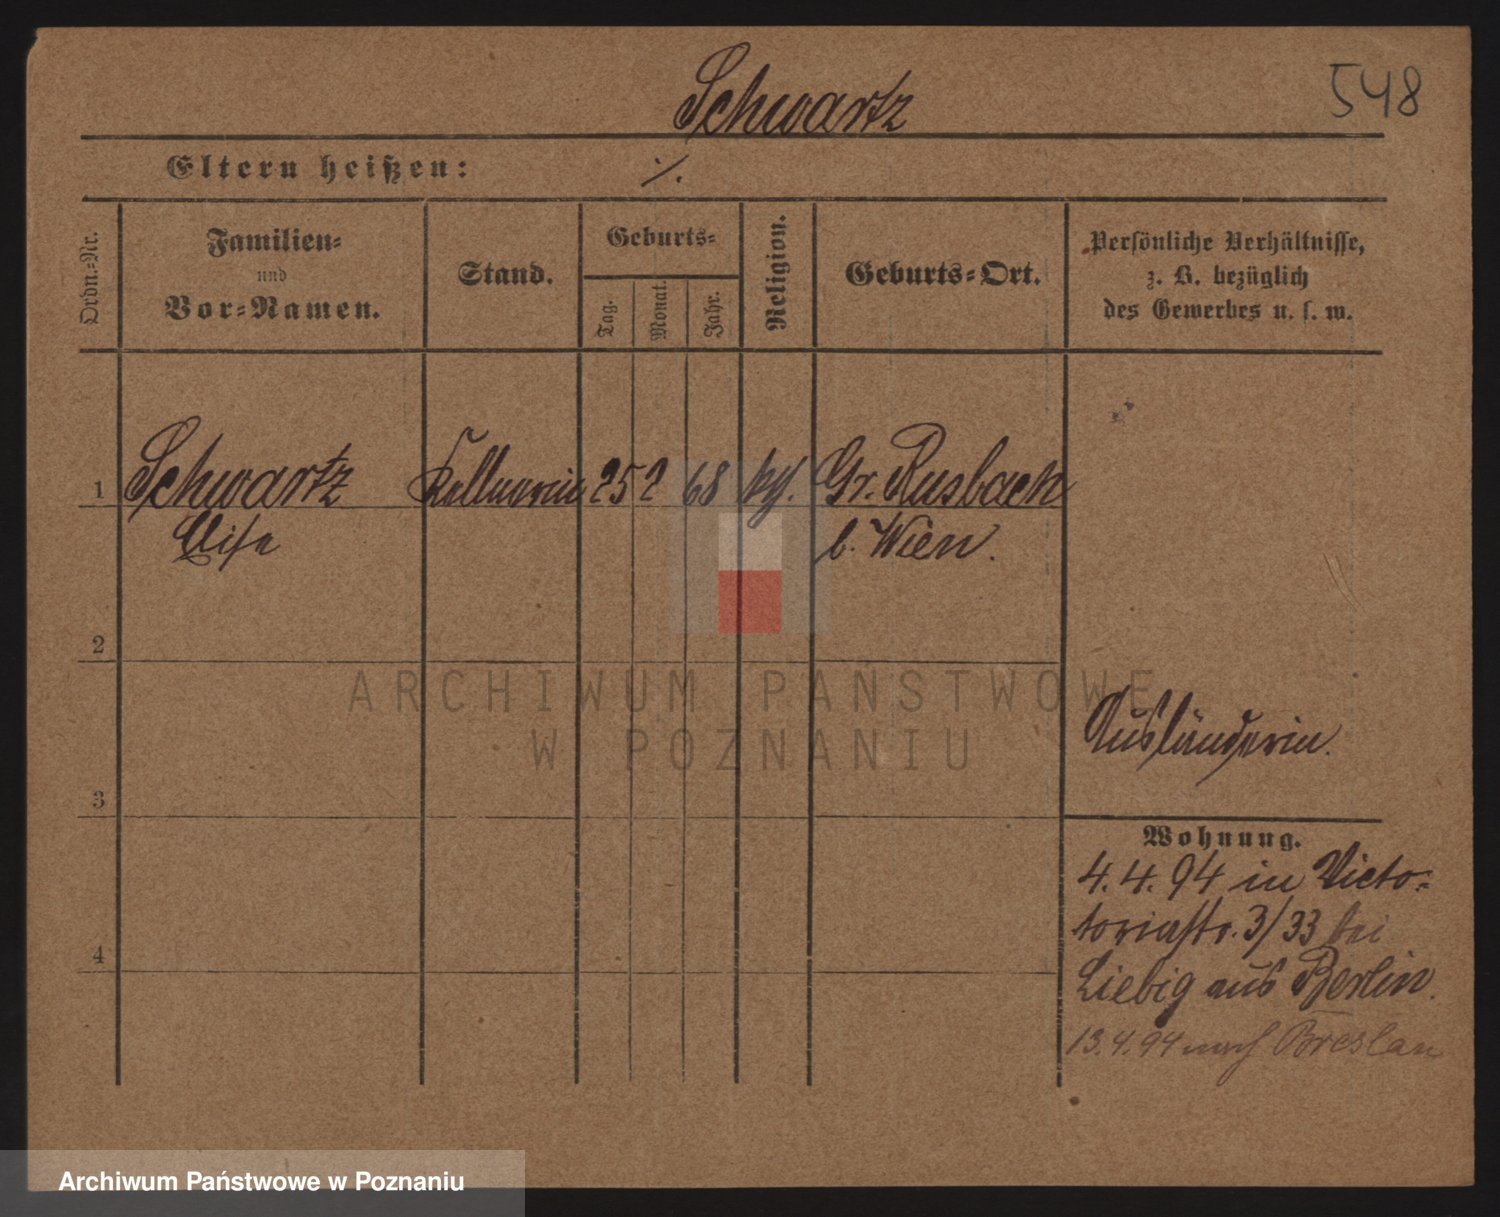 548
Schwartz
Eltern heißen: ./.
Ordn.-Nr.
Familien-
und
Vor-Namen.
Stand.
Geburts-
Tag.
Monat.
Jahr.
Religion.
Geburts-Ort.
Persönliche Verhältnisse,
z. B. bezüglich
des Gewerbes u. s. w.
1 Schwartz Kellnerin 25 2 68 kg. Gr. Rusbach
Elise b. Wien.
2
ARCHIWUM PAŃSTWOWE
W POZNANIU
Ausländerin.
3
Wohnung.
4. 4. 94 in Victo-
toriastr. 3/33 bei
4
Liebig aus Berlin.
13. 4. 94 nach Breslau
Archiwum Państwowe w Poznaniu